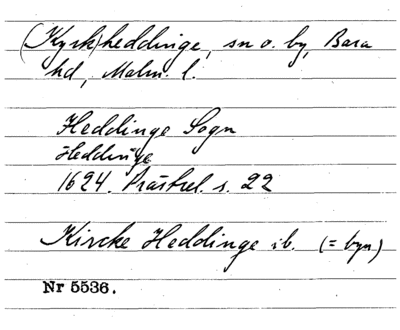 (Kyrk)heddinge, sn o. by, Bara
hd, Malm. l.
Heddinge Sogn
Heddinge
1624. Prästrel. s. 22
Kircke Heddinge ib. (= byn)
Nr 5536.